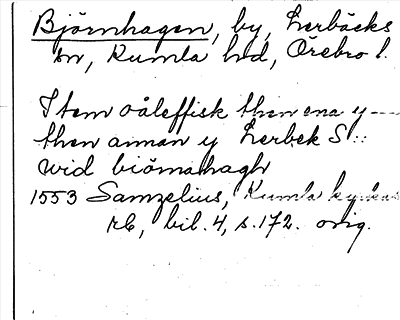 Björnhagen, by, Lerbäcks
sn, Kumla hd, Örebro l.
Item oåleffisk then ena y
then annan y Lerbek S::
wid biörnahagh
1553 Samzelius, Kumla kyrkas
rb, bil. 4, s. 172. orig.